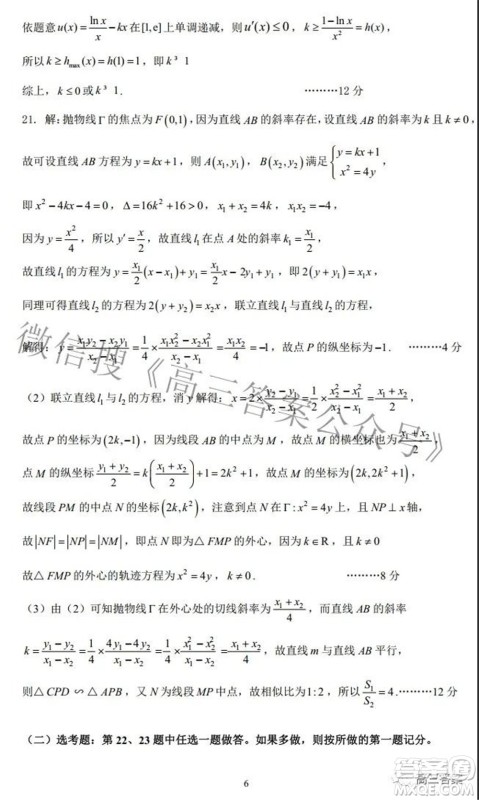 依题意u(x)=\frac{\ln x}{x}-kx在[1,e]上单调递减，则u′(x)≤0，k≥\frac{1-\ln x}{x^2}=h(x)，
所以k≥h_{max}(x)=h(1)=1，即k³ 1
综上，k≤0或k³ 1.  ………12分
21. 解：抛物线Γ的焦点为F(0,1)，因为直线AB的斜率存在，设直线AB的斜率为k且k≠0，
故可设直线AB方程为y=kx+1，则A(x₁,y₁)，B(x₂,y₂)满足{y=kx+1, x²=4y，
即x²-4kx-4=0，Δ=16k²+16>0，x₁+x₂=4k，x₁x₂=-4，
因为y=\frac{x²}{4}，所以y′=\frac{x}{2}，故直线l₁在点A处的斜率k₁=\frac{x₁}{2}，
故直线l₁的方程为\frac{x₁}{2}(x-x₁)+y₁=\frac{x₁}{2}x-2y₁+y₁，即2(y+y₁)=x₁x，
同理可得直线l₂的方程为2(y+y₂)=x₂x，联立直线l₁与l₂的方程，
解得：y=\frac{x₁y₂-x₂y₁}{x₂-x₁}=\frac{1}{4}×\frac{x₁x₂²-x₂x₁²}{x₂-x₁}=\frac{x₁x₂}{4}=-1，故点P的纵坐标为-1.  ………4分
（2）联立直线l₁与l₂的方程，消y解得：x=2×\frac{y₂-y₁}{x₂-x₁}=\frac{1}{2}×\frac{x₂²-x₁²}{x₂-x₁}=\frac{x₁+x₂}{2}，
故点P的坐标为(2k,-1)，因为线段AB的中点为M，故点M的横坐标也为\frac{x₁+x₂}{2}，
点M的纵坐标\frac{y₁+y₂}{2}=k(\frac{x₁+x₂}{2})+1=2k²+1，故点M的坐标为(2k,2k²+1)，
故线段PM的中点N的坐标(2k,k²)，注意到点N在Γ:x²=4y上，且NP⊥x轴，
故|NF|=|NP|=|NM|，即点N即为△FMP的外心，因为k∈R，且k≠0
故△FMP的外心的轨迹方程为x²=4y，k≠0.  ………8分
（3）由（2）可知抛物线Γ在外心处的切线斜率为\frac{x₁+x₂}{4}，而直线AB的斜率
k=\frac{y₁-y₂}{x₁-x₂}=\frac{1}{4}×\frac{4y₁-4y₂}{x₁-x₂}=\frac{1}{4}×\frac{x₁²-x₂²}{x₁-x₂}=\frac{x₁+x₂}{4}，故直线m与直线AB平行，
则△CPD∽△APB，又N为线段MP中点，故相似比为1:2，所以\frac{S₁}{S₂}=4.………12分
（二）选考题：第22、23题中任选一题做答。如果多做，则按所做的第一题记分。
6
微信搜《高三答案公众号》
高三答案
答案圈
MXQE.COM